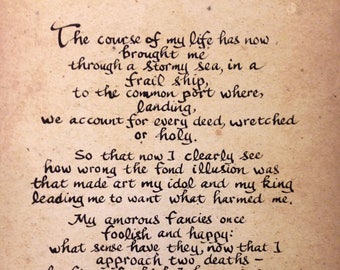 The course of my life has now
brought me
through a stormy sea, in a
frail ship,
to the common port where,
landing,
we account for every deed, wretched
or holy.
So that now I clearly see
how wrong the fond illusion was
that made art my idol and my king
leading me to want what harmed me.
My amorous fancies once
foolish and happy:
what sense have they, now that I
approach two deaths—